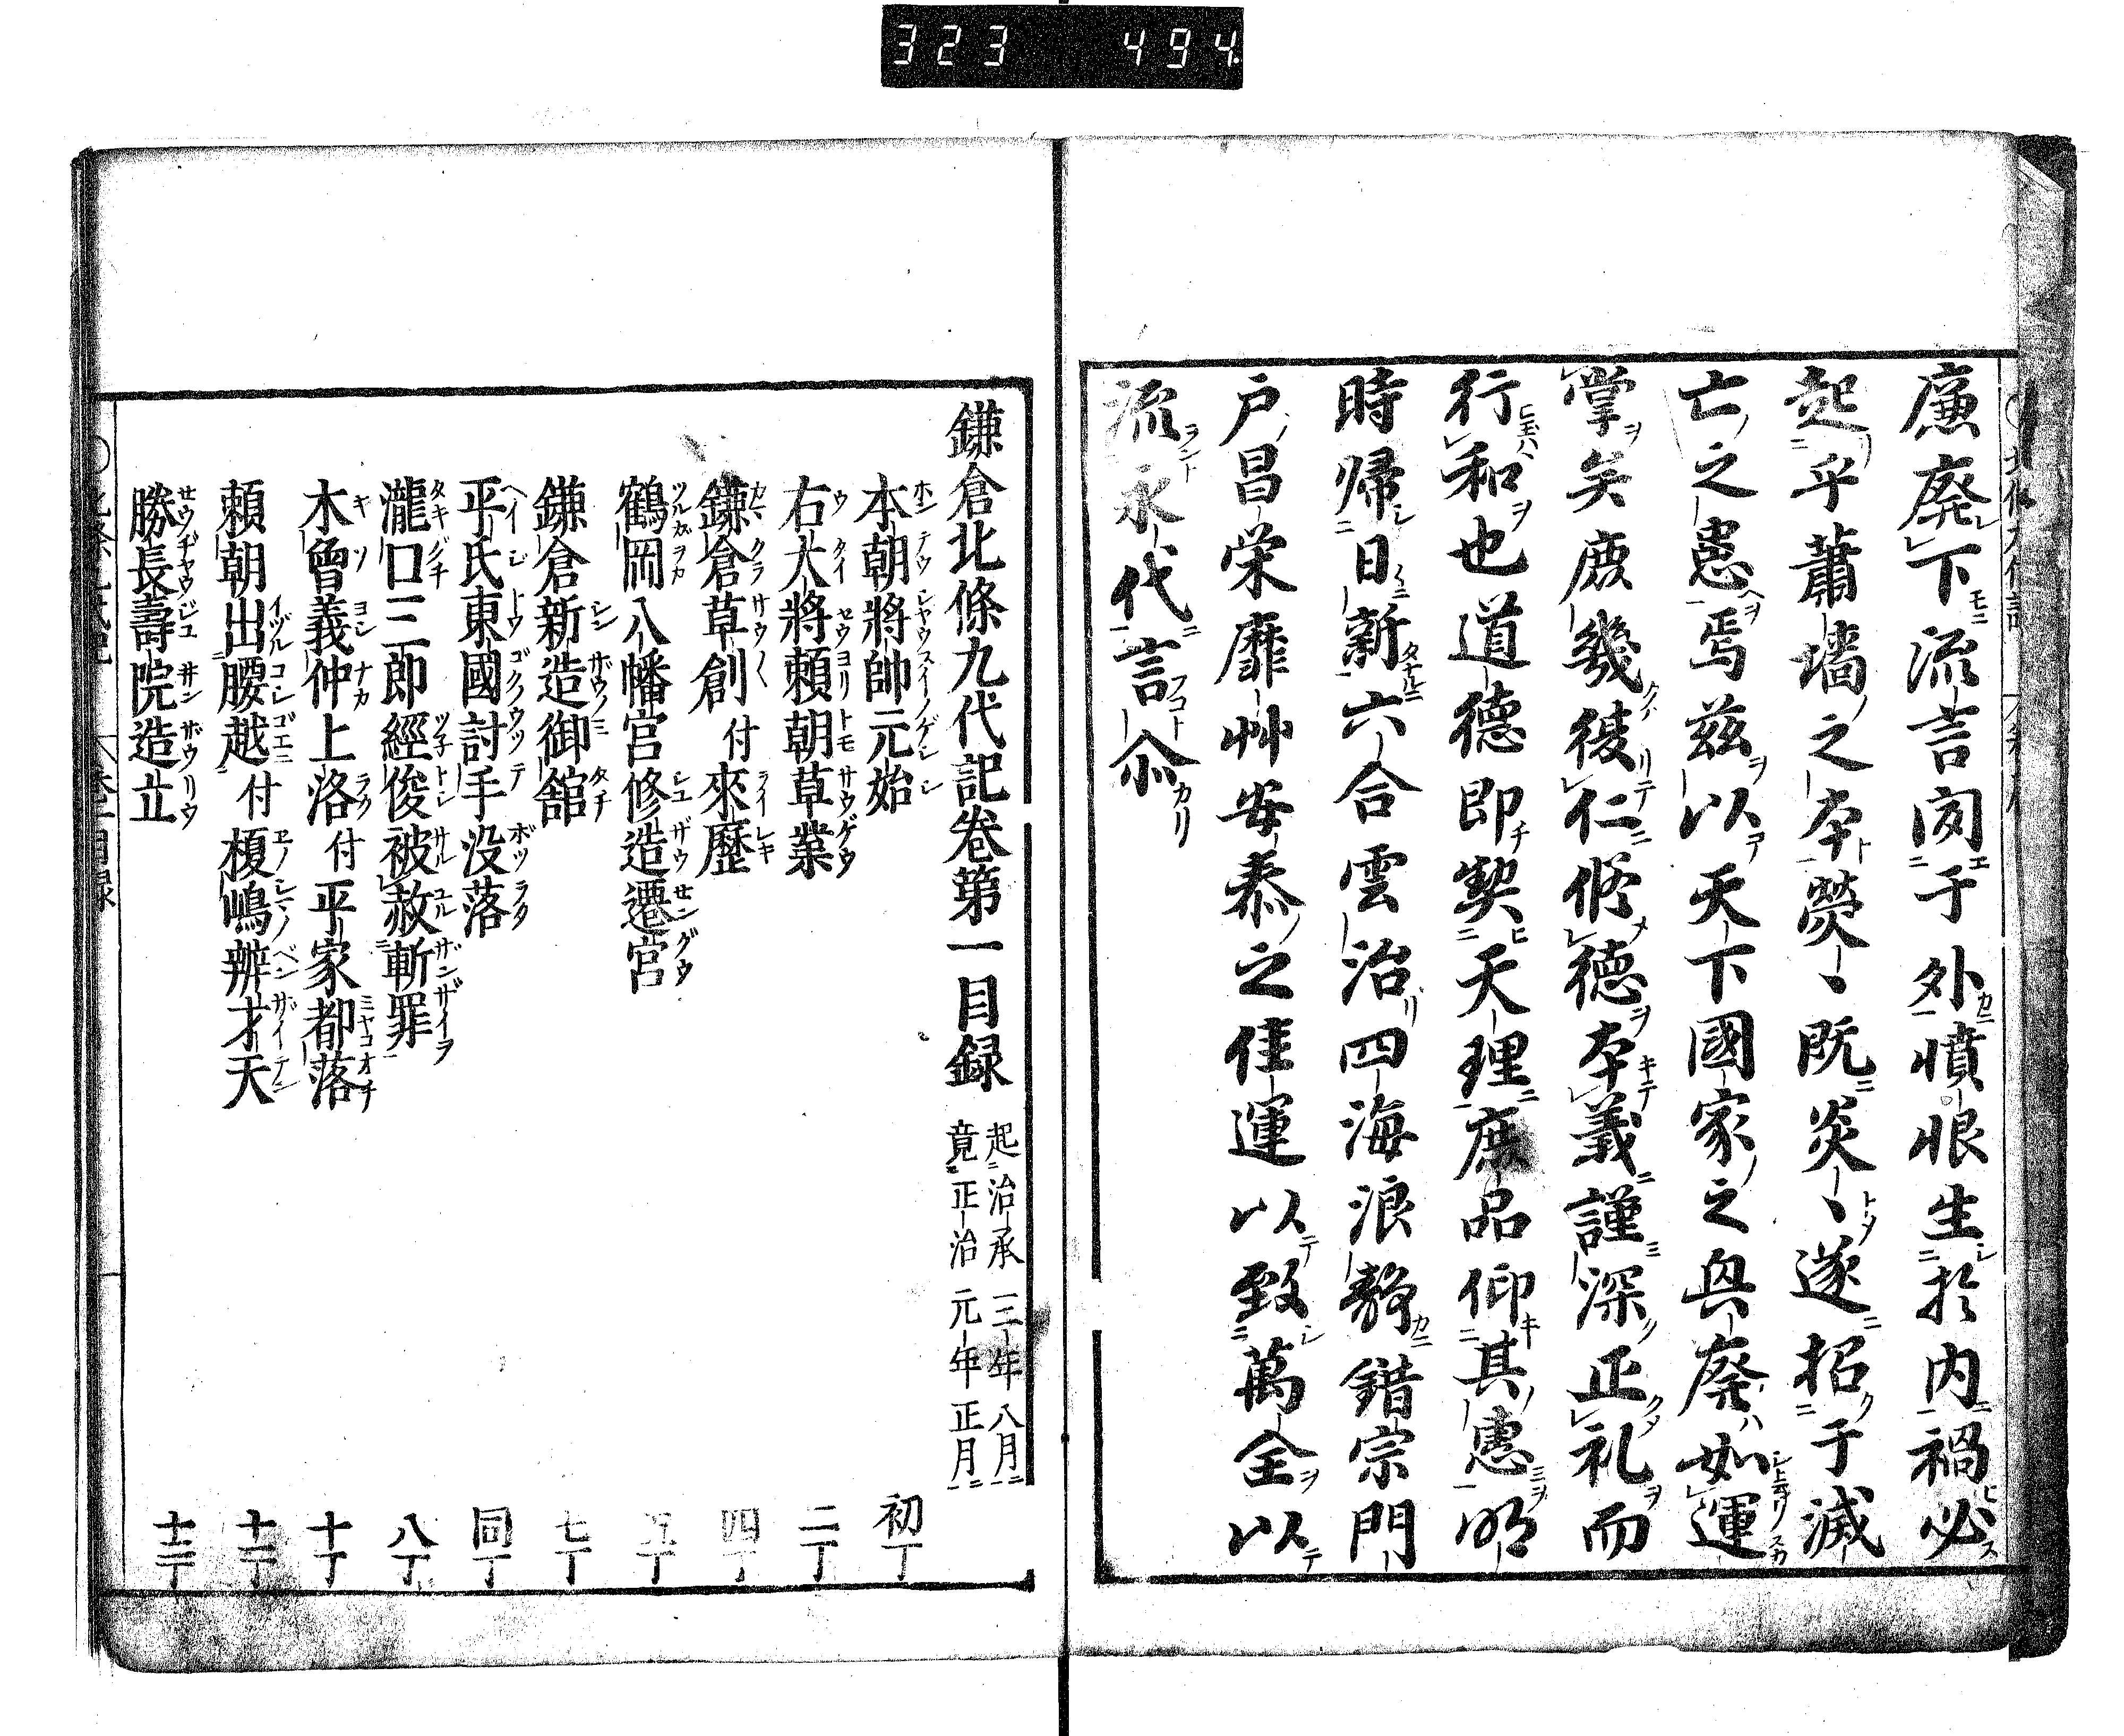 323 494
廉廃下流言閧于外憤恨生於内禍必
起乎蕭墻之本熒〻既炎〻遂招于滅
亡之患焉茲以天下國家之興廃如運
掌矣庶幾復仁脩德本義謹深正礼而
行和也道德即契天理庶品仰其惠明
時帰日新六合雲治四海浪静鍇宗門
戸昌栄靡艸安泰之佳運以致萬全以
流永代言尒
鎌倉北條九代記巻第一目録 起治承三年八月 竟正治元年正月
本朝將帥元始 初丁
右大將頼朝草業 二丁
鎌倉草創 付來歷 四丁
鶴岡八幡宮修造遷宮 五丁
鎌倉新造御舘 七丁
平氏東國討手没落 同丁
瀧口三郎經俊被赦斬罪 八丁
木曾義仲上洛 付平家都落 十丁
頼朝出腰越 付榎嶋辨才天 十二丁
勝長壽院造立 十三丁